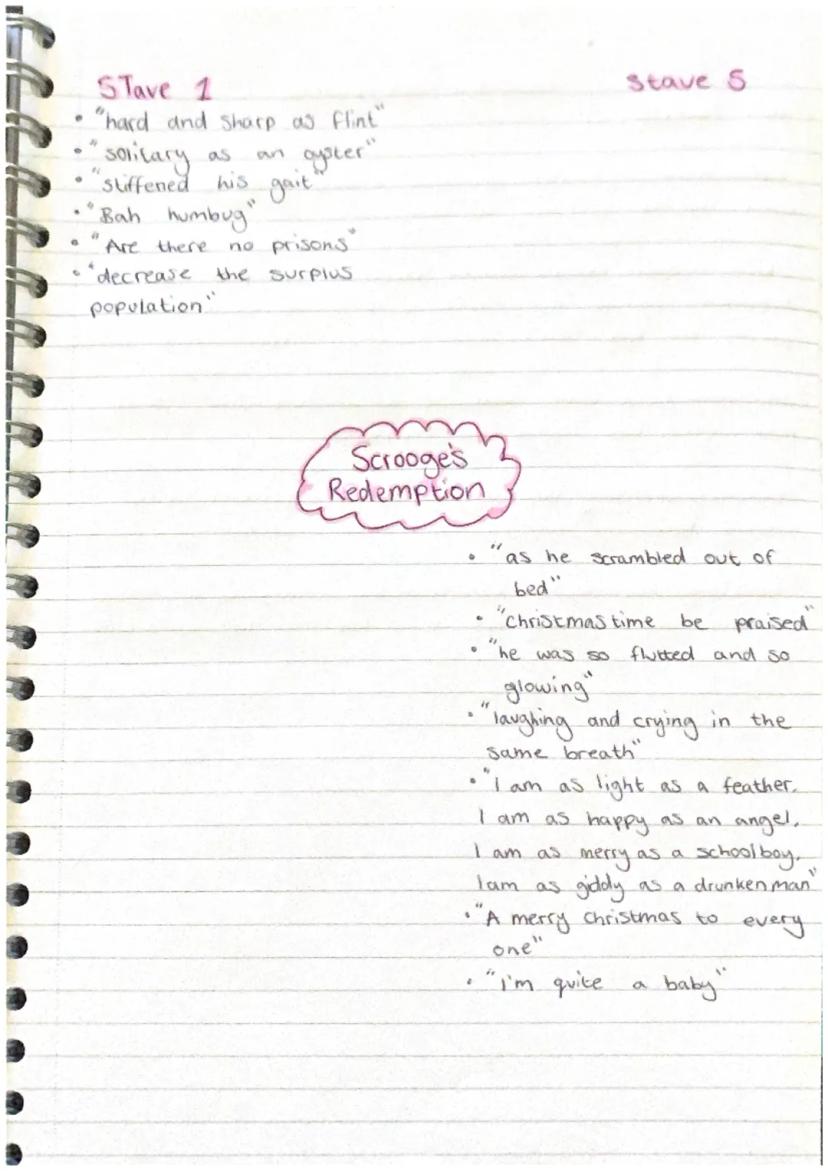 STave 1
Stave 5
• "hard and sharp as flint"
• "solitary as an oyster"
• "stiffened his gait"
• "Bah humbug"
• "Are there no prisons"
• "decrease the surplus
population"
Scrooge's
Redemption
• "as he scrambled out of
bed"
• "christmas time be praised"
• "he was so flutted and so
glowing"
• "laughing and crying in the
same breath"
• "I am as light as a feather.
I am as happy as an angel.
I am as merry as a schoolboy.
I am as giddy as a drunken man"
• "A merry christmas to every
one"
• "i'm quite a baby"